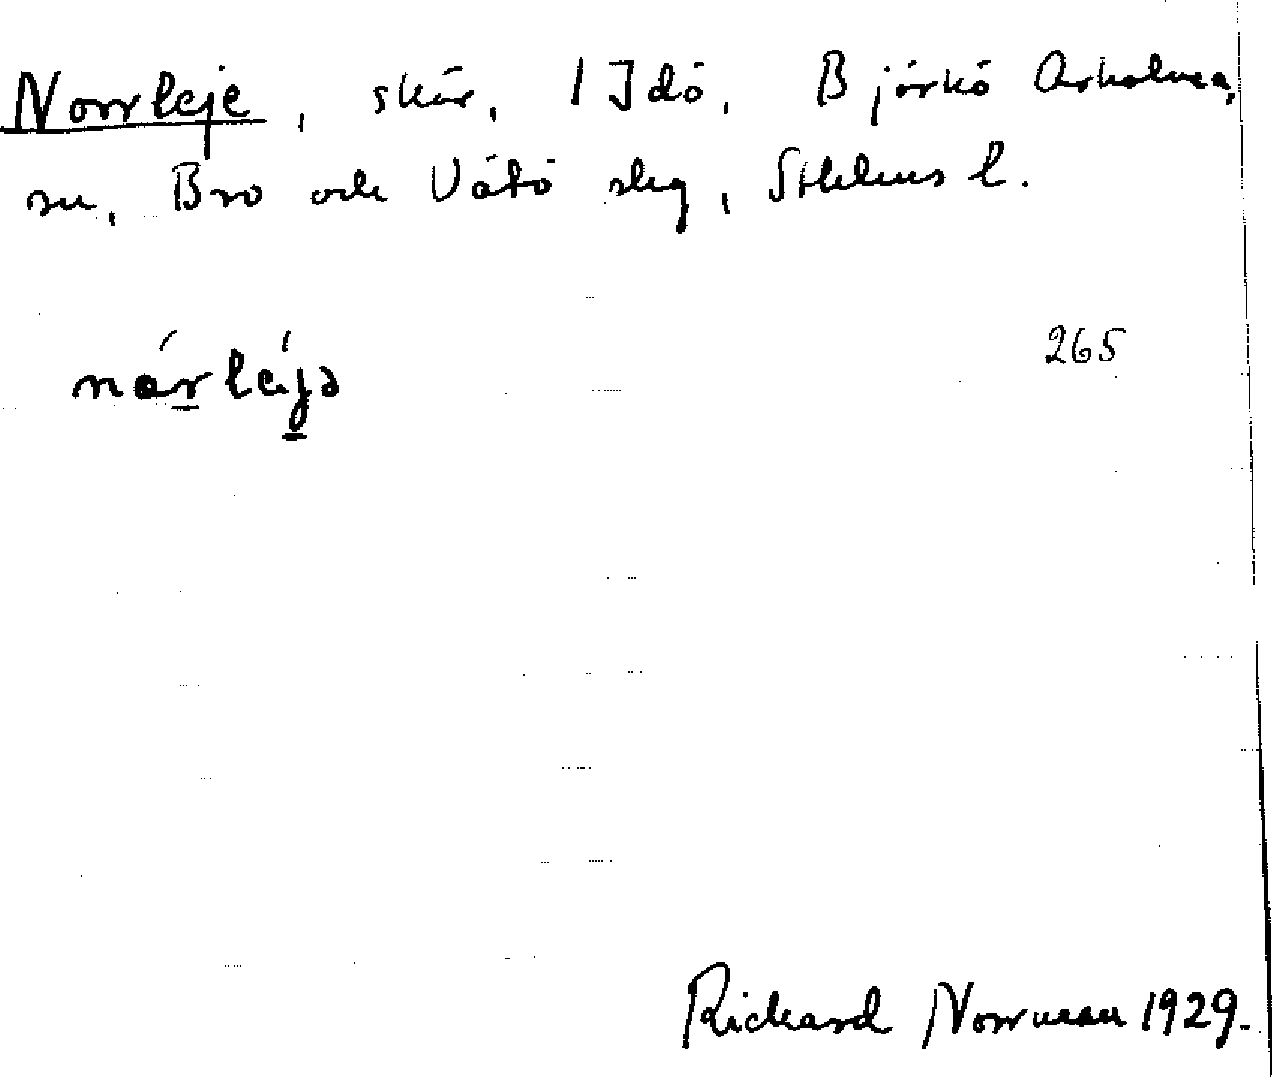 Norrleje, skär, 1 Idö, Björkö Arholma,
sn, Bro och Vätö skg, Sthlms l.
265
nárléjə
Rickard Norrman 1929.